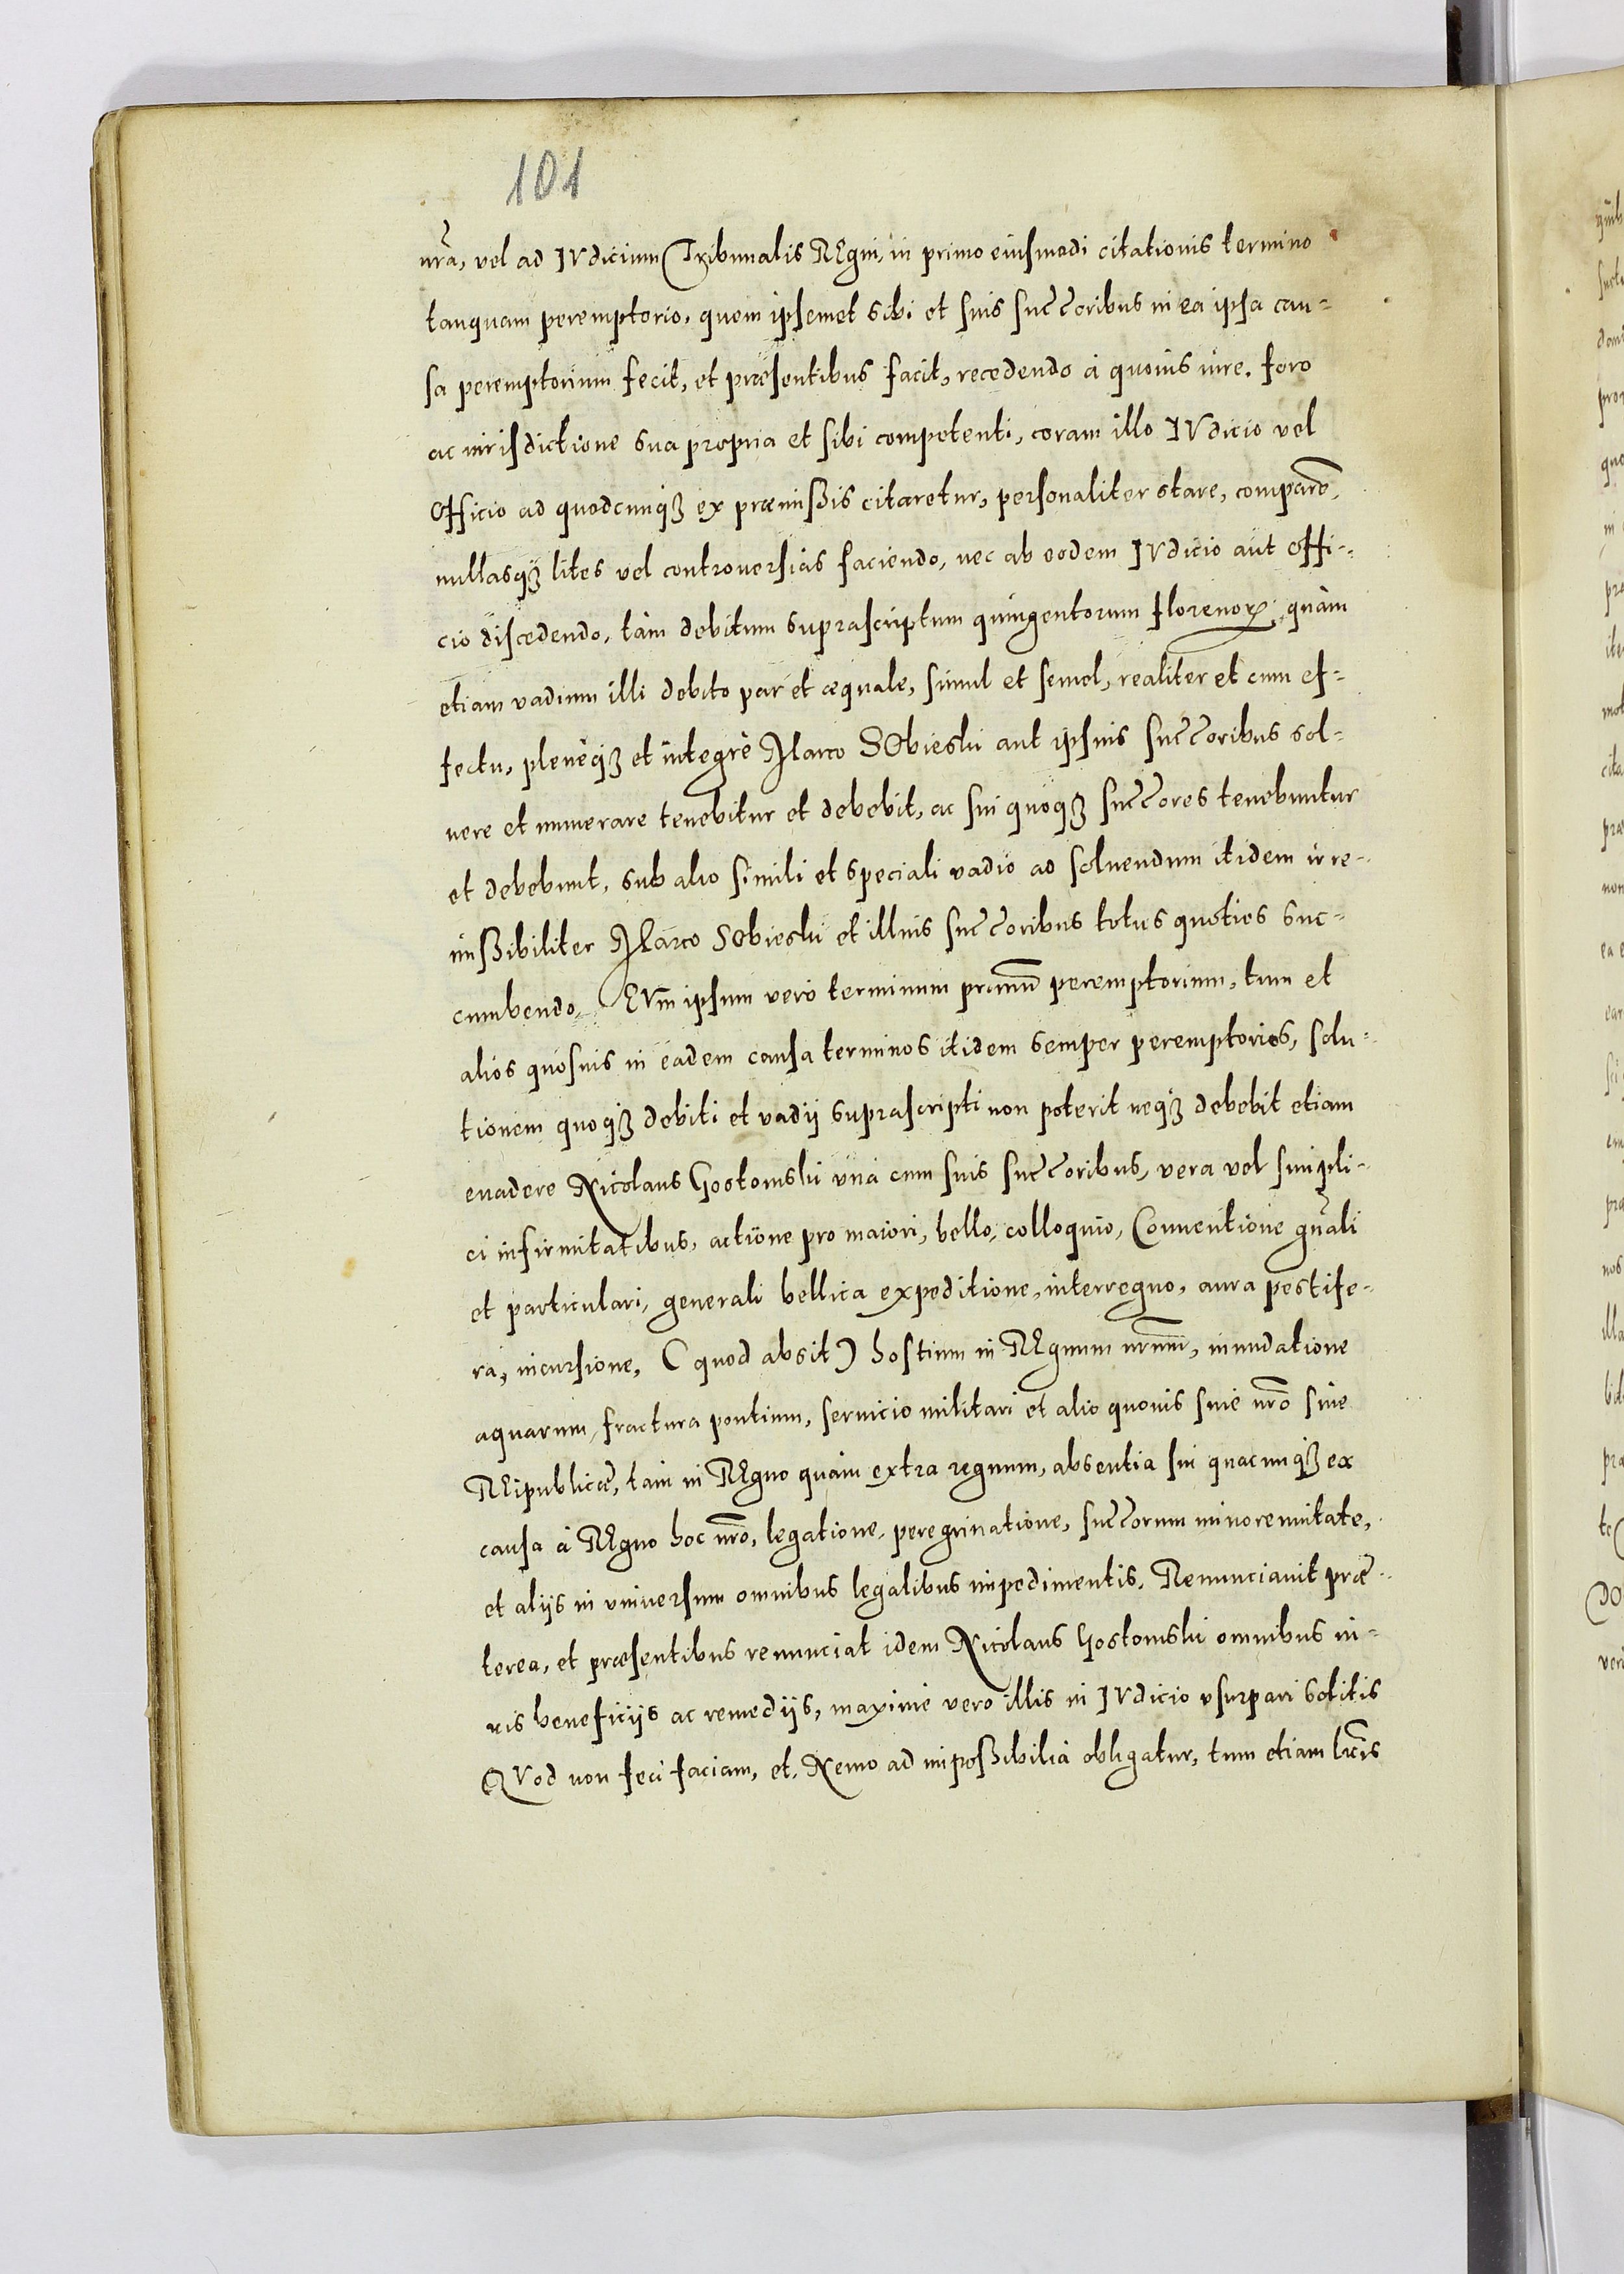 101
nrã, vel ad IVdicium Tribunalis REgni, in primo eiusmodi citationis termino
tanquam peremptorio, quem ipsemet sibi et suis succcoribus in ea ipsa cau-
sa peremptorium fecit, et præsentibus facit, recedendo à quouis iure, foro
ac iurisdictione sua propria et sibi competenti, coram illo IVdicio vel
Officio ad quodcunqꝫ ex præmißis citaretur, personaliter stare, comparere,
nullasqꝫ lites vel controuersias faciendo, nec ab eodem IVdicio aut offi-
cio discedendo, tàm debitum suprascriptum quingentorum florenoꝝ, quàm
etiam vadium illi debito par et æquale, simul et semel, realiter et cum ef-
fectu, plenèqꝫ et integrè Marco SObieski aut ipsius succcoribus sol-
uere et numerare tenebitur et debebit, ac sui quoqꝫ succcores tenebuntur
et debebunt, sub alio simili et speciali vadio ad soluendum itidem irre-
mißibiliter Marco SObieski et illius succcoribus toties quoties suc-
cumbendo. EVm ipsum verò terminum primũ peremptorium, tum et
alios quosuis in eadem causa terminos itidem semper peremptorios, solu-
tionem quoqꝫ debiti et vadij suprascripti non poterit neqꝫ debebit etiam
euadere Nicolaus Gostomski vnà cum suis succcoribus, vera vel simpli-
ci infirmitatibus, actione pro maiori, bello, colloquio, Conuentione gñali
et particulari, generali bellica expeditione, interregno, aura pestife-
ra, incursione, (quod absit) hostium in REgnum nrũm, inundatione
aquarum, fractura pontium, seruicio militari et alio quouis siue nrõ siue
REipublicæ, tàm in REgno quàm extra regnum, absentia sui quacunqꝫ ex
causa à REgno hoc nrõ, legatione, peregrinatione, succcorum minorennitate,
et alijs in vniuersum omnibus legalibus impedimentis. Renunciauit præ-
terea, et præsentibus renunciat idem Nicolaus Gostomski omnibus iu-
ris beneficijs ac remedijs, maximè vero illis in IVdicio vsurpari solitis
QVod non feci faciam, et, Nemo ad impoßibilia obligatur, tum etiam lrĩs